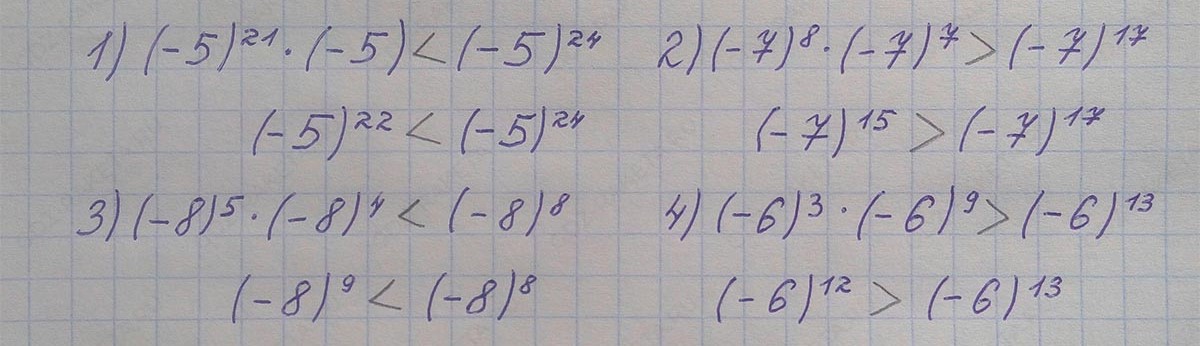 1) (-5)²¹ · (-5) < (-5)²⁴
(-5)²² < (-5)²⁴
2) (-7)⁸ · (-7)⁷ > (-7)¹⁷
(-7)¹⁵ > (-7)¹⁷
3) (-8)⁵ · (-8)⁴ < (-8)⁸
(-8)⁹ < (-8)⁸
4) (-6)³ · (-6)⁹ > (-6)¹³
(-6)¹² > (-6)¹³